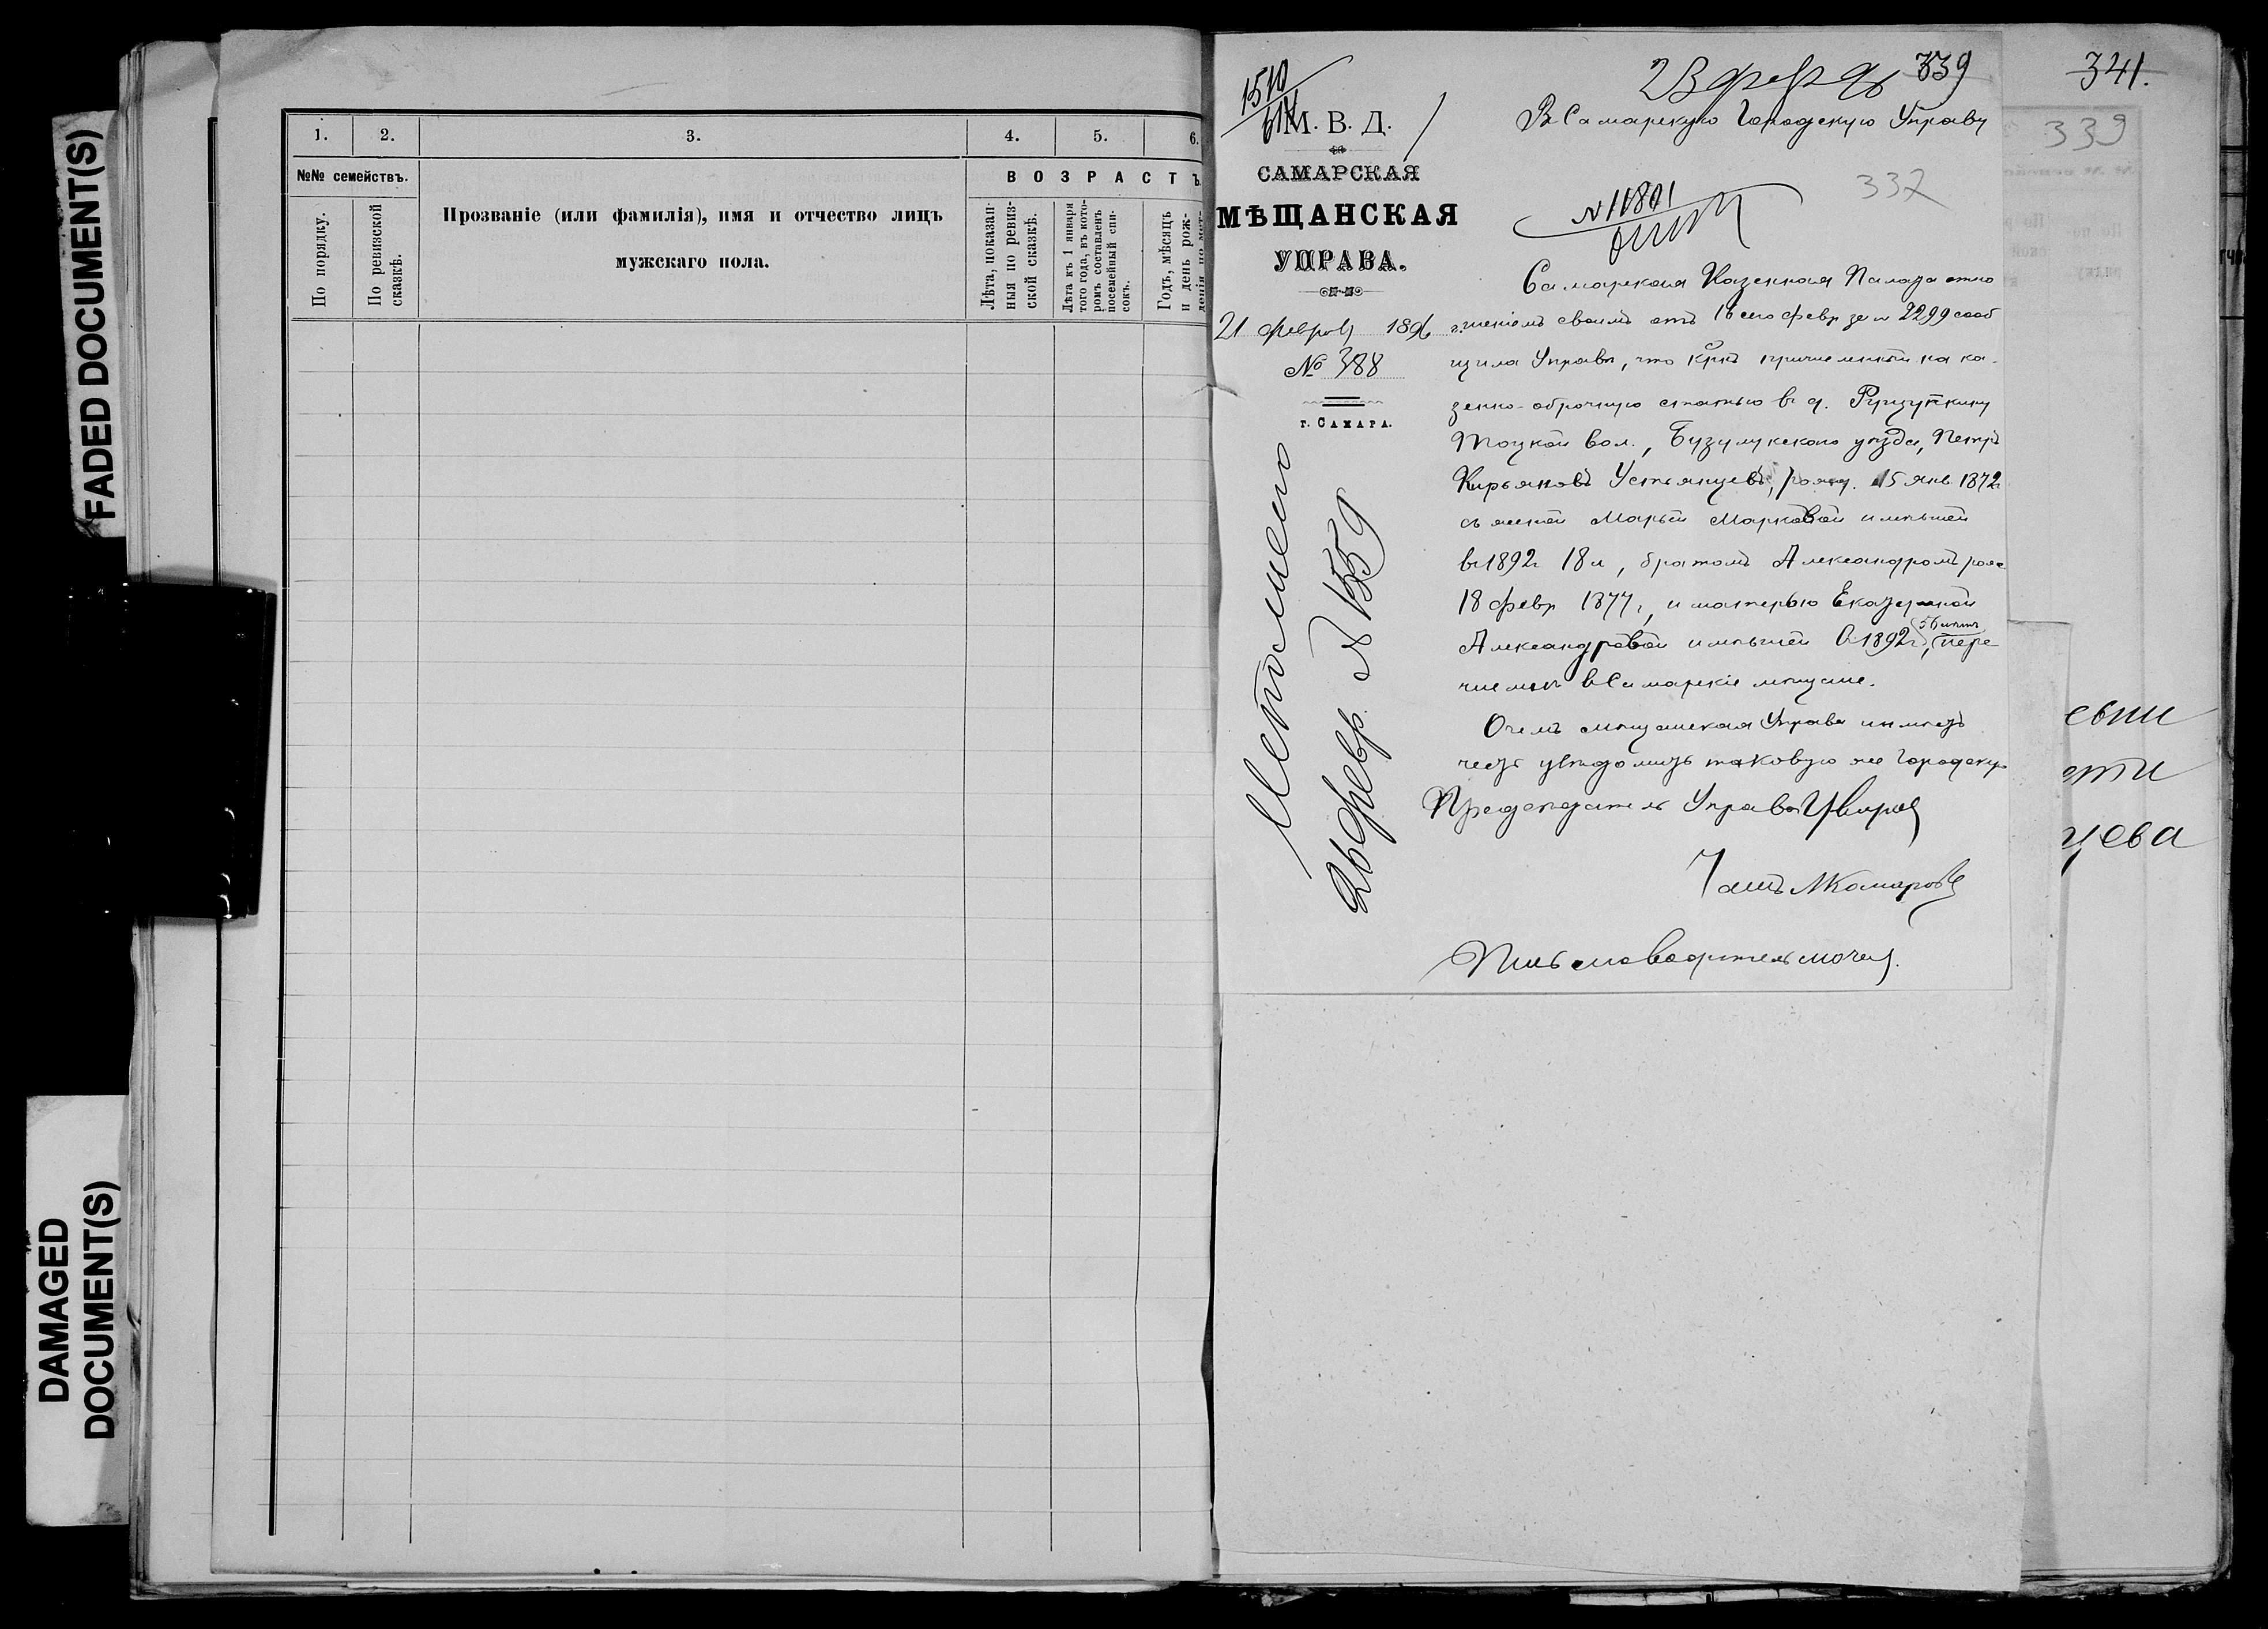 FADED DOCUMENT(S)
DAMAGED
DOCUMENT(S)
1. 2. 3. 4. 5. 6.
№№ семействъ.
По порядку.
По ревизской
сказкѣ.
Прозваніе (или фамилія), имя и отчество лицъ
мужскаго пола.
ВОЗРАСТЪ
Лѣта, показан-
ныя по ревиз-
ской сказкѣ.
Лѣта къ 1 января
того года, въ кото-
ромъ составленъ
посемейный спи-
сокъ.
Годъ, мѣсяцъ
и день рож-
денія по мет-
1510
М. В. Д.
САМАРСКАЯ
МѢЩАНСКАЯ
УПРАВА.
21 февраля 1896 г.
№ 388
г. САМАРА.
26 февр. № 1559
23 фев 339
Въ Самарскую Городскую Управу
337
№ 11801
Самарская Казенная Палата отно
шеніемъ своимъ отъ 16 сего февр за № 2299 сооб
щила Управѣ, что кр-нъ причисленный на ка-
зенно-оброчную статью въ д.
Тоцкой вол., Бузулукскаго уѣзда, Петръ
Кирьяновъ Устьянцевъ, рожд. 15 янв 1872г
съ женой Марьей Марковой имѣвшей
въ 1892г 18 л, братомъ Александромъ рож
18 февр 1877г, и матерью Екатериной
Александровой имѣвшей въ 1892г, 56 лѣтъ пере
численъ въ Самарскіе мѣщане.
О чемъ мѣщанская Управа имѣетъ
честь увѣдомить таковую же Городскую
Предсѣдатель Управы
Членъ Комаровъ
Письмоводитель
341.
339
евни
сти
цева